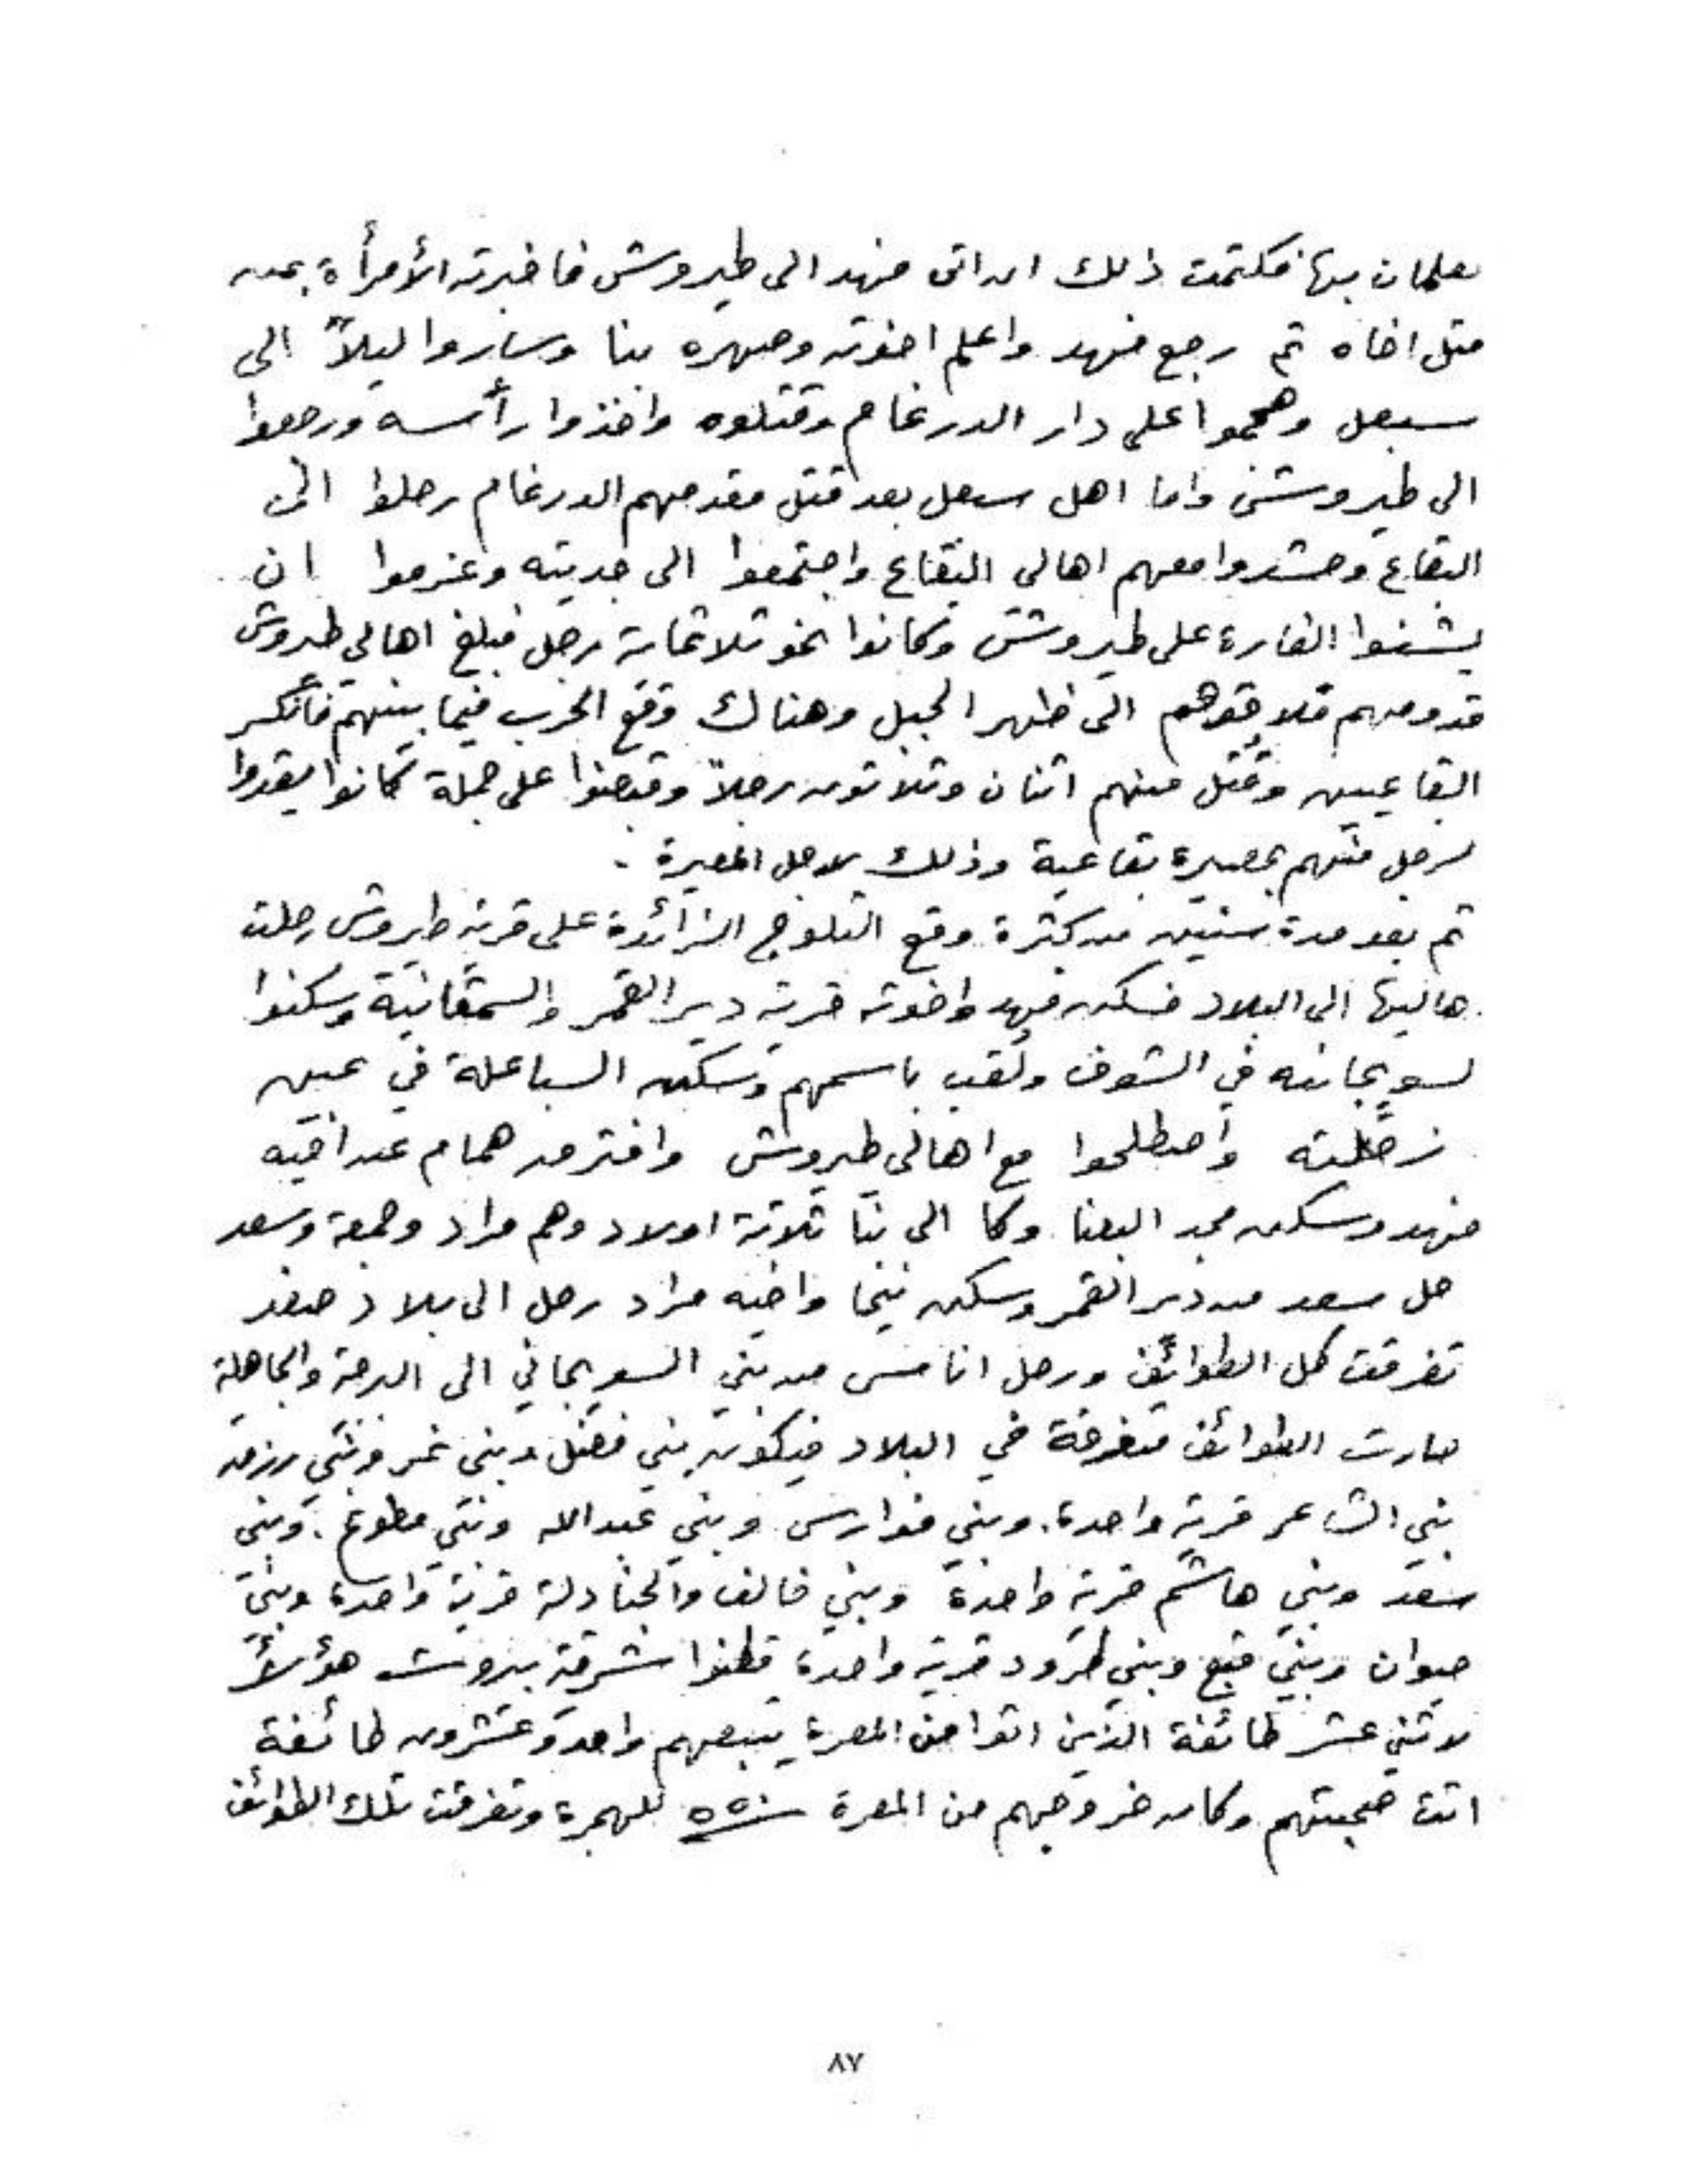 يعلمان بها فكتمت ذلك الى ان اتى فهد الى طيروش فاخبرته الأمرأة بمن
قتل اخاه ثم رجع فهد واعلم اخوته وصهره بنا وساروا ليلاً الى
سبعل وهجموا على دار الدرغام وقتلوه واخذوا رأسه ورجعوا
الى طيروش واما اهل سبعل بعد قتل مقدمهم الدرغام رحلوا الى
البقاع وحشدوا معهم اهالي البقاع واجتمعوا الى جديته وعزموا ان
يشنوا الغارة على طيروش وكانوا نحو ثلاثماية رجل فبلغ اهالي طيروش
قدومهم فلاقوهم الى ظهر الجبل وهناك وقع الحرب فيما بينهم فأنكسر
البقاعيين وقتل منهم اثنان وثلاثون رجلاً وقبضوا على جملة كانوا يفدوا
لرجل منهم بمعيرة بقاعية وذلك لاجل المعيرة .
ثم بعد مدة سنتين من كثرة وقع الثلوج الزائدة على قرية طيروش رحلت
هاليها الى البلاد فسكن فهد واخوته قرية دير القمر والسمقانية وسكنوا
لسويجانيه في الشوف ولقب باسمهم وسكن السباعلة في عين
زحلته واصطلحوا مع اهالي طيروش وافترق همام عن اخيه
فهد وسكن مجد البعنا وكا الى بنا ثلاثة اولاد وهم مراد وجمعة وسعد
حل سعد من دير القمر وسكن نيحا واخيه مراد رحل الى بلاد صفد
تفرقت كل الطوائف ورحل اناس من بني السويجاني الى البرجة والجاهلية
صارت الطوائف متفرقة في البلاد فيكون بني فضل وبني نمر وبني رزق
بني الشاعر قرية واحدة. وبني فوارس وبني عبدالله وبني مطوع. وبني
سعد وبني هاشم قرية واحدة وبني خالف والجنادلة قرية واحدة وبني
صوان وبني قبع وبني طرود قرية واحدة قطنوا شرقي بيروت هؤلأ
لاثني عشر طائفة الذين اتوا من المعرة يتبعهم واحد وعشرون طائفة
اتت صحبتهم وكان خروجهم من المعرة سنة للهجرة وتفرقت تلك الطوائف
٨٧